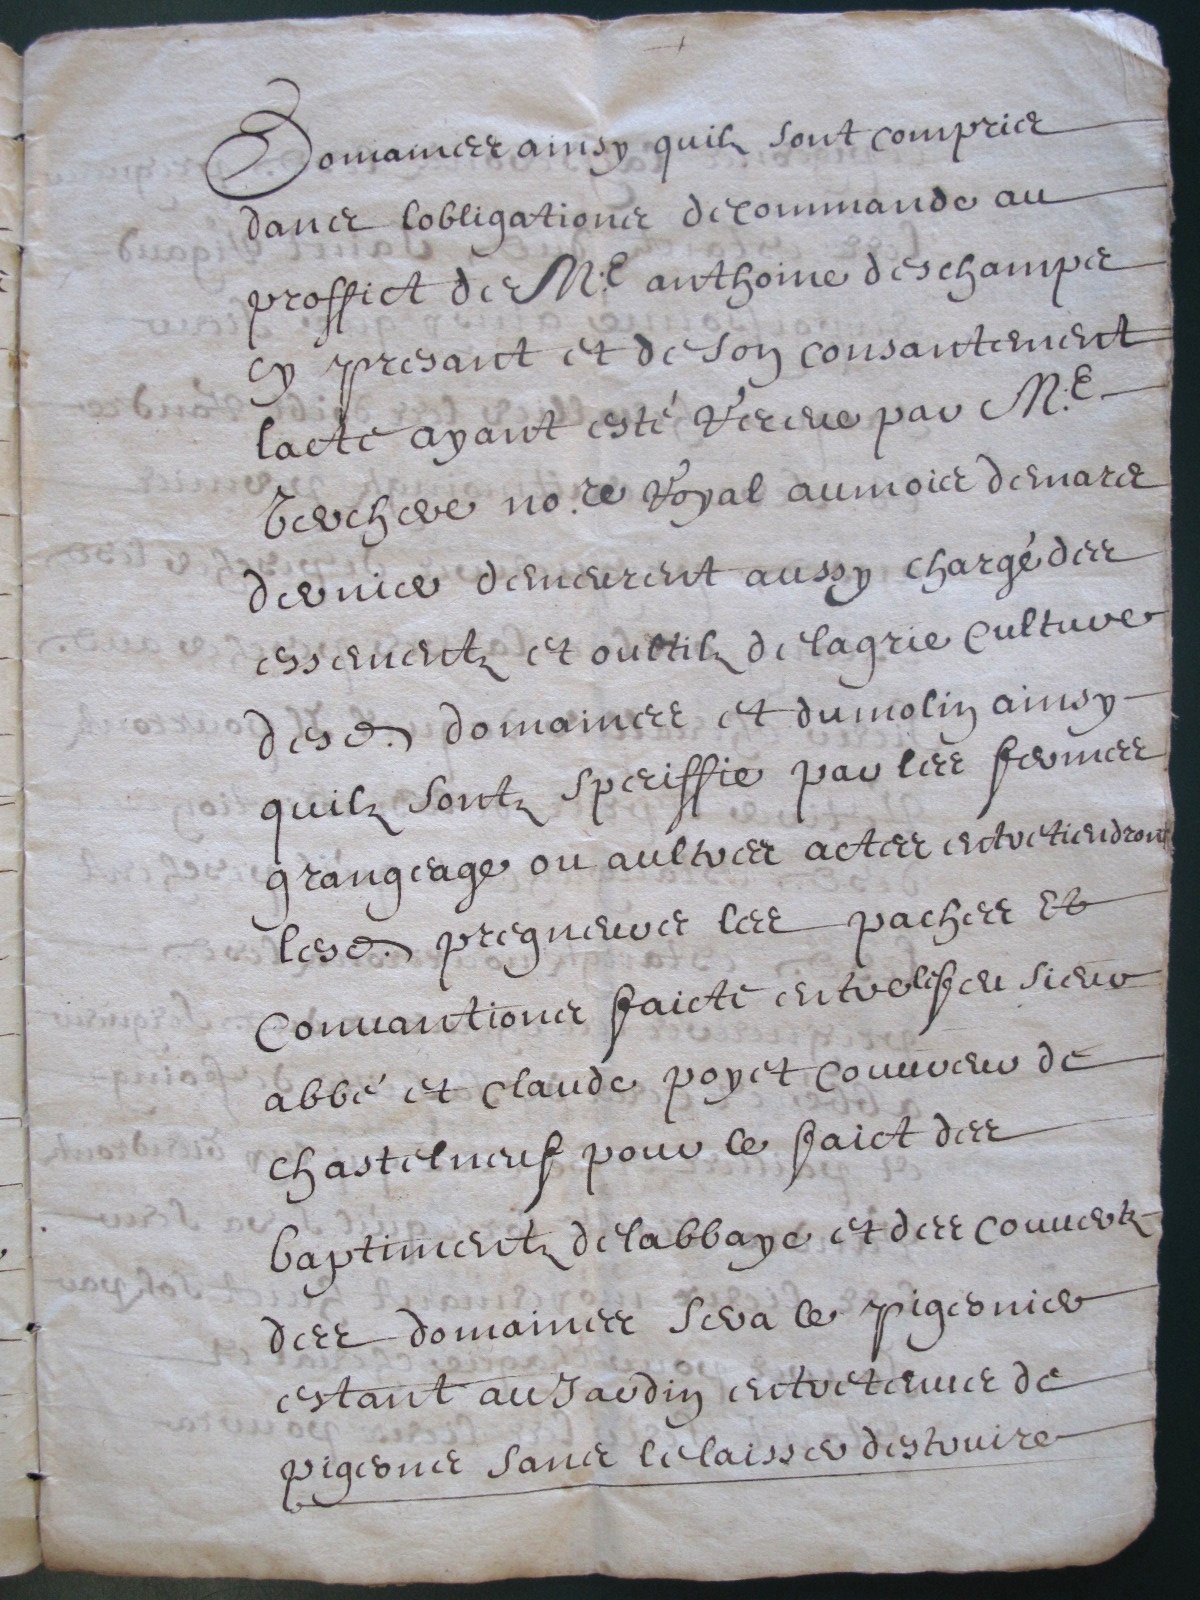 Domaines ainsy quilz sont compris
dans lobligations de commande au
proffict de M.E anthoine deschamps
cy presant et de son consantement
lacte ayant esté receue par M.E
berchere no.re Royal au mois de mars
dernier demeurent aussy chargé des
essementz et oultilz de lagrie culture
desd. domaines et du molin ainsy
quilz sontz speciffie par les fermes
grangeage ou aultres actes entretiendront
lesd. pregneurs les paches et
convantions faicte entre le feu sieur
abbé et Claude poyet couvreur de
chastelneuf pour le faict des
baptimentz de labbaye et des couvertz
des domaines sera le pigeonier
estant au Jardin entretenus de
pigeons sans le laisser destruire